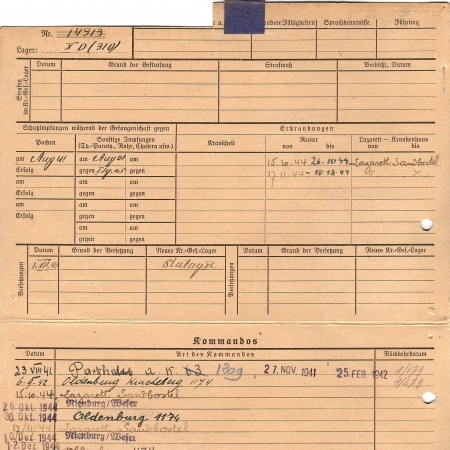 Nr. 14313
u. a. besondere Fähigkeiten Sprachkenntnisse Führung
Lager: XD (310)
Strafen im Kr.-Gef.-Lager
Datum Grund der Bestrafung Strafmaß Verbüßt, Datum
Schutzimpfungen während der Gefangenschaft gegen Erkrankungen
Pocken Sonstige Impfungen (Ty.-Paraty., Ruhr, Cholera usw.) Krankheit Revier von bis Lazarett — Krankenhaus von bis
am Aug 41 am Aug 41 15.10.44 26.10.44 Lazarett Sandbostel
Erfolg gegen 17.11.44 - 10.12.44
am am
Erfolg gegen
am am
Erfolg gegen
am
gegen
Versetzungen Datum Grund der Versetzung Neues Kr.-Gef.-Lager Versetzungen Datum Grund der Versetzung Neues Kr.-Gef.-Lager
1.XII.41 Stalag XC
Kommandos
Datum Art des Kommandos Rückkehrdatum
23 VIII 41 a. K. 27. NOV. 1941 25 FEB. 1942
Oldenburg 1174
15.10.44 Lazarett Sandbostel
26. Okt. 1944 Nienburg/Weser
30. Okt. 1944 Oldenburg 1174
17/11 44 Lazarett Sandbostel
10. Dez. 1944 Nienburg/Weser
12. Dez. 1174